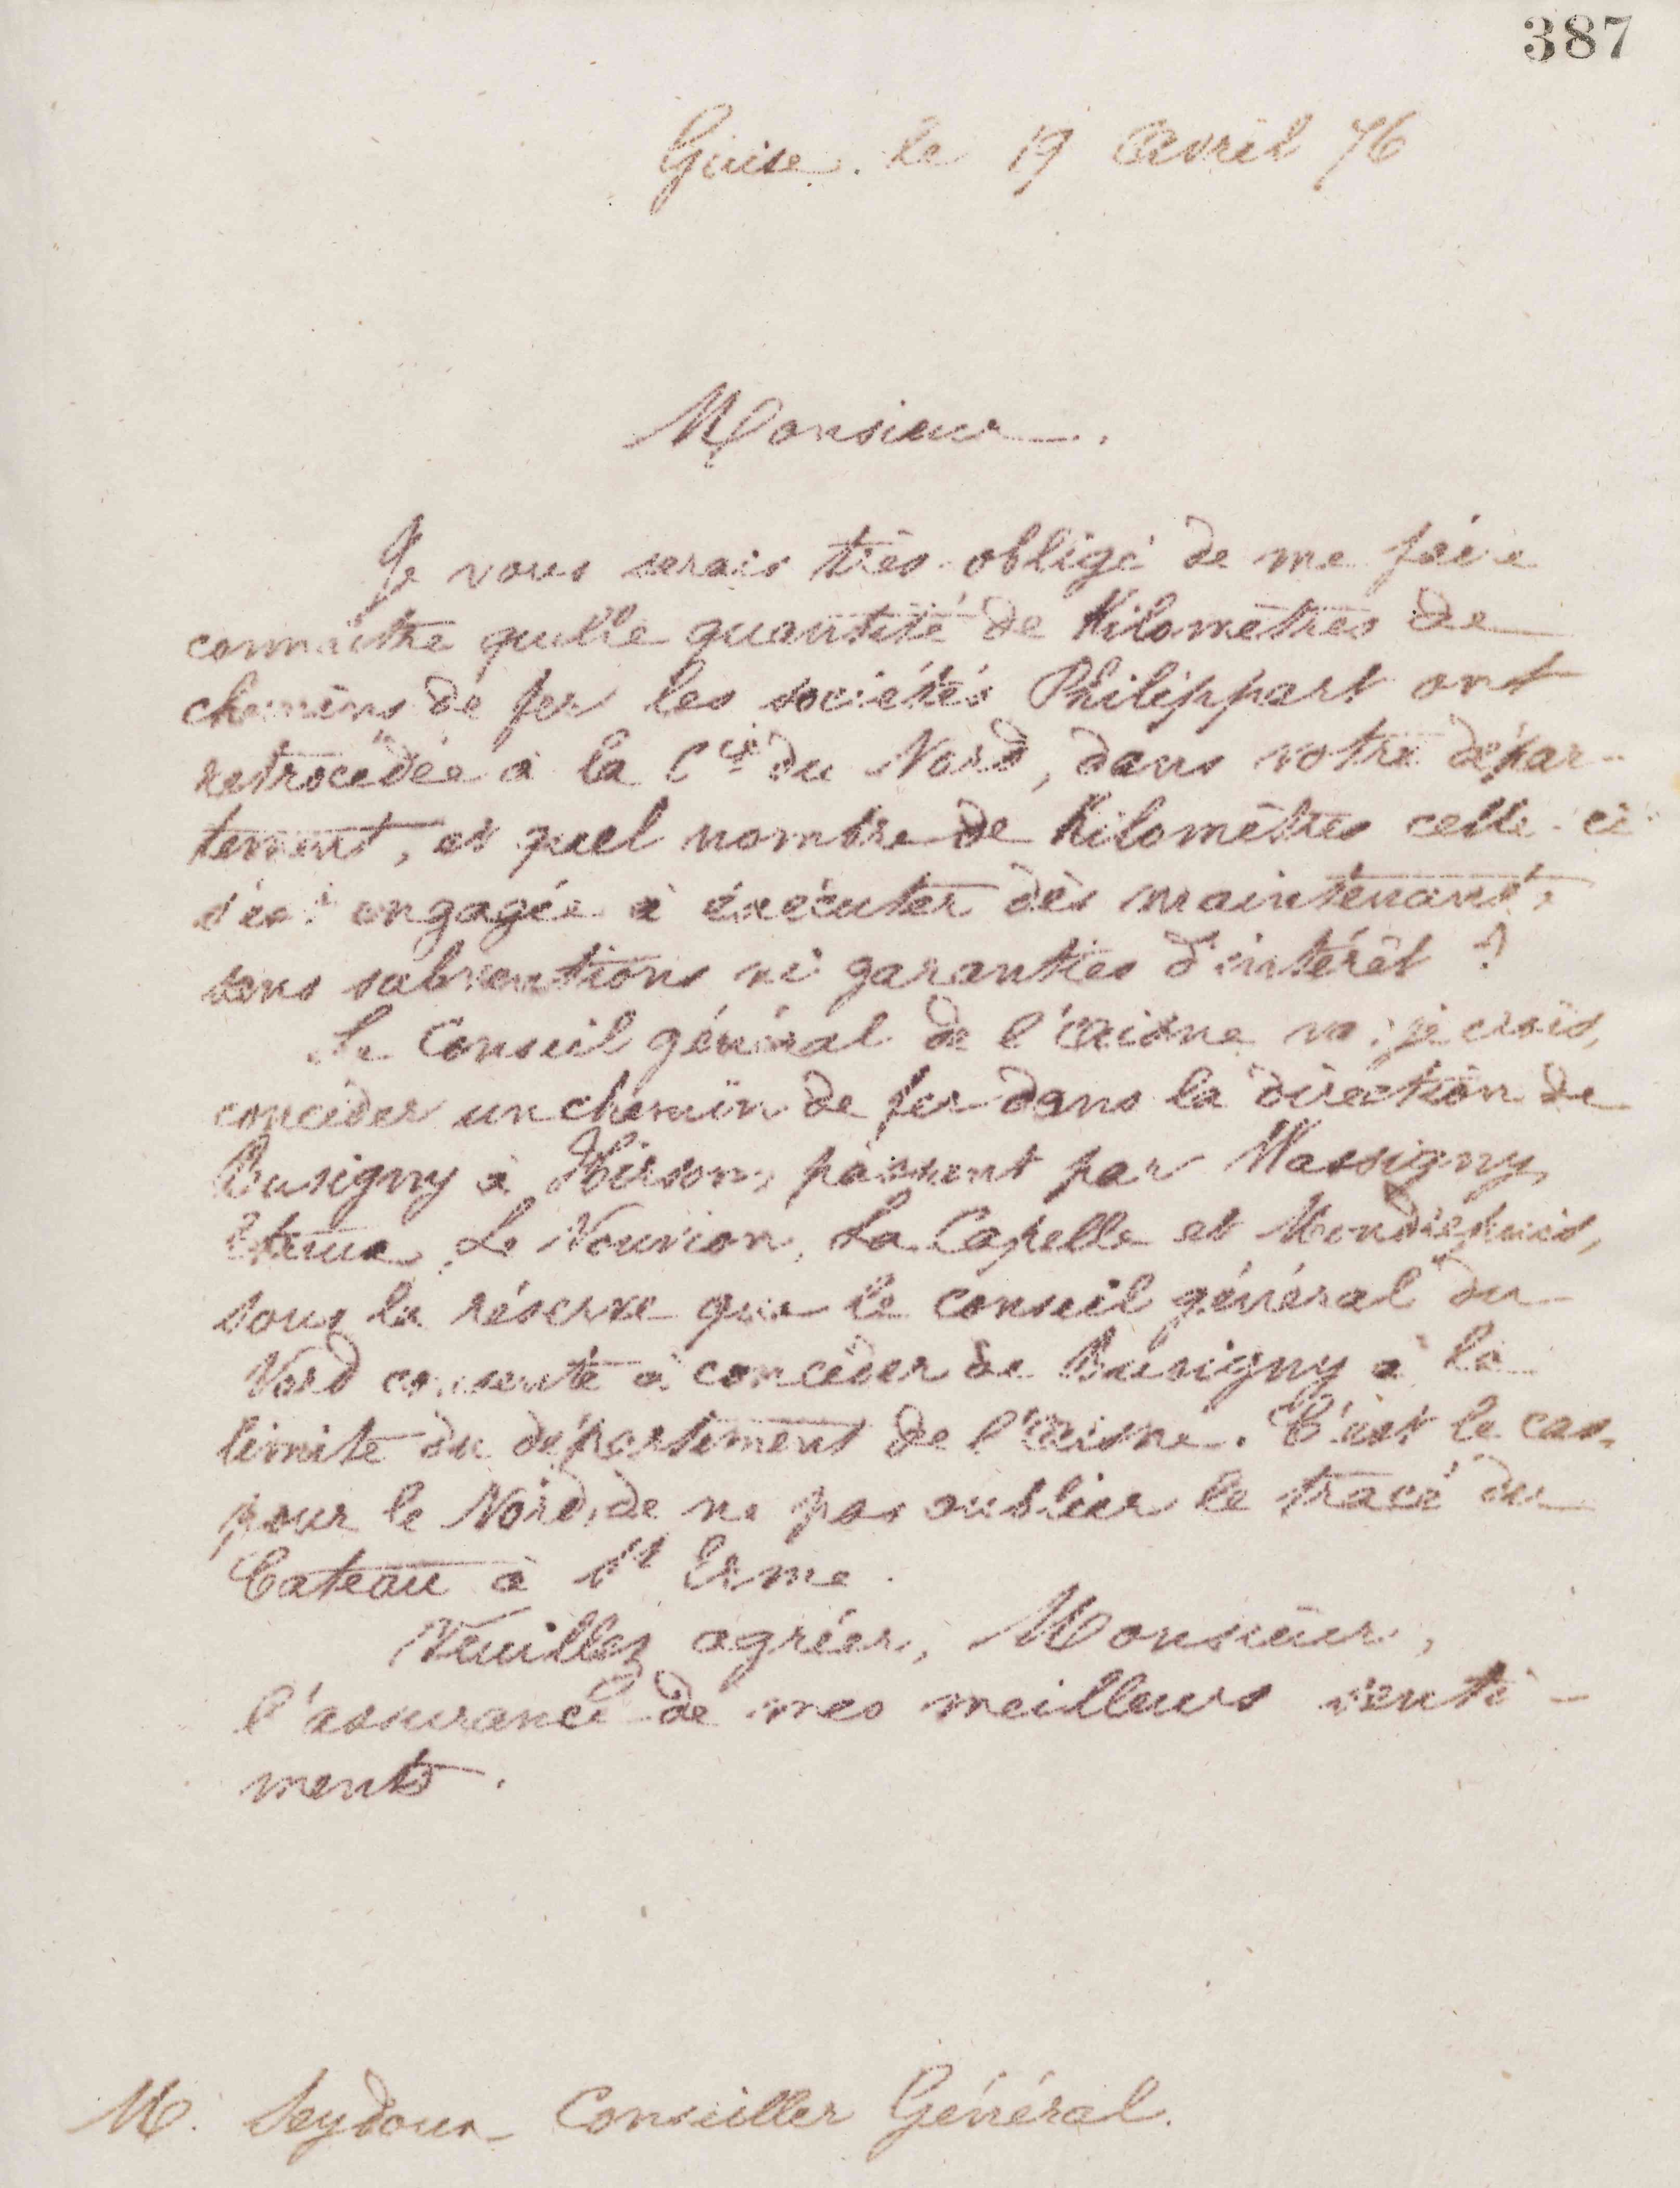 387
Guise. le 19 Avril 76
Monsieur.
Je vous serais très obligé de me faire
connaître quelle quantité de Kilomètres de
chemins de fer les sociétés Philippart ont
retrocédée à la Cie du Nord, dans votre dépar-
tement, et quel nombre de Kilomètres celle-ci
s'est engagée à exécuter dès maintenant,
sans subventions ni garanties d'intérêt ?
Le Conseil général de l'Aisne va, je crois,
concéder un chemin de fer dans la direction de
Busigny à Hirson, passant par Wassigny,
Etreux, Le Nouvion, La Capelle et Mondrepuis,
sous la réserve que le conseil général du
Nord consente à concéder de Busigny à la
limite du département de l'Aisne. C'est le cas,
pour le Nord, de ne pas oublier le tracé du
Cateau à St Erme.
Veuillez agréer, Monsieur,
l'assurance de mes meilleurs senti-
ments.
M. Seydoux Conseiller Général.